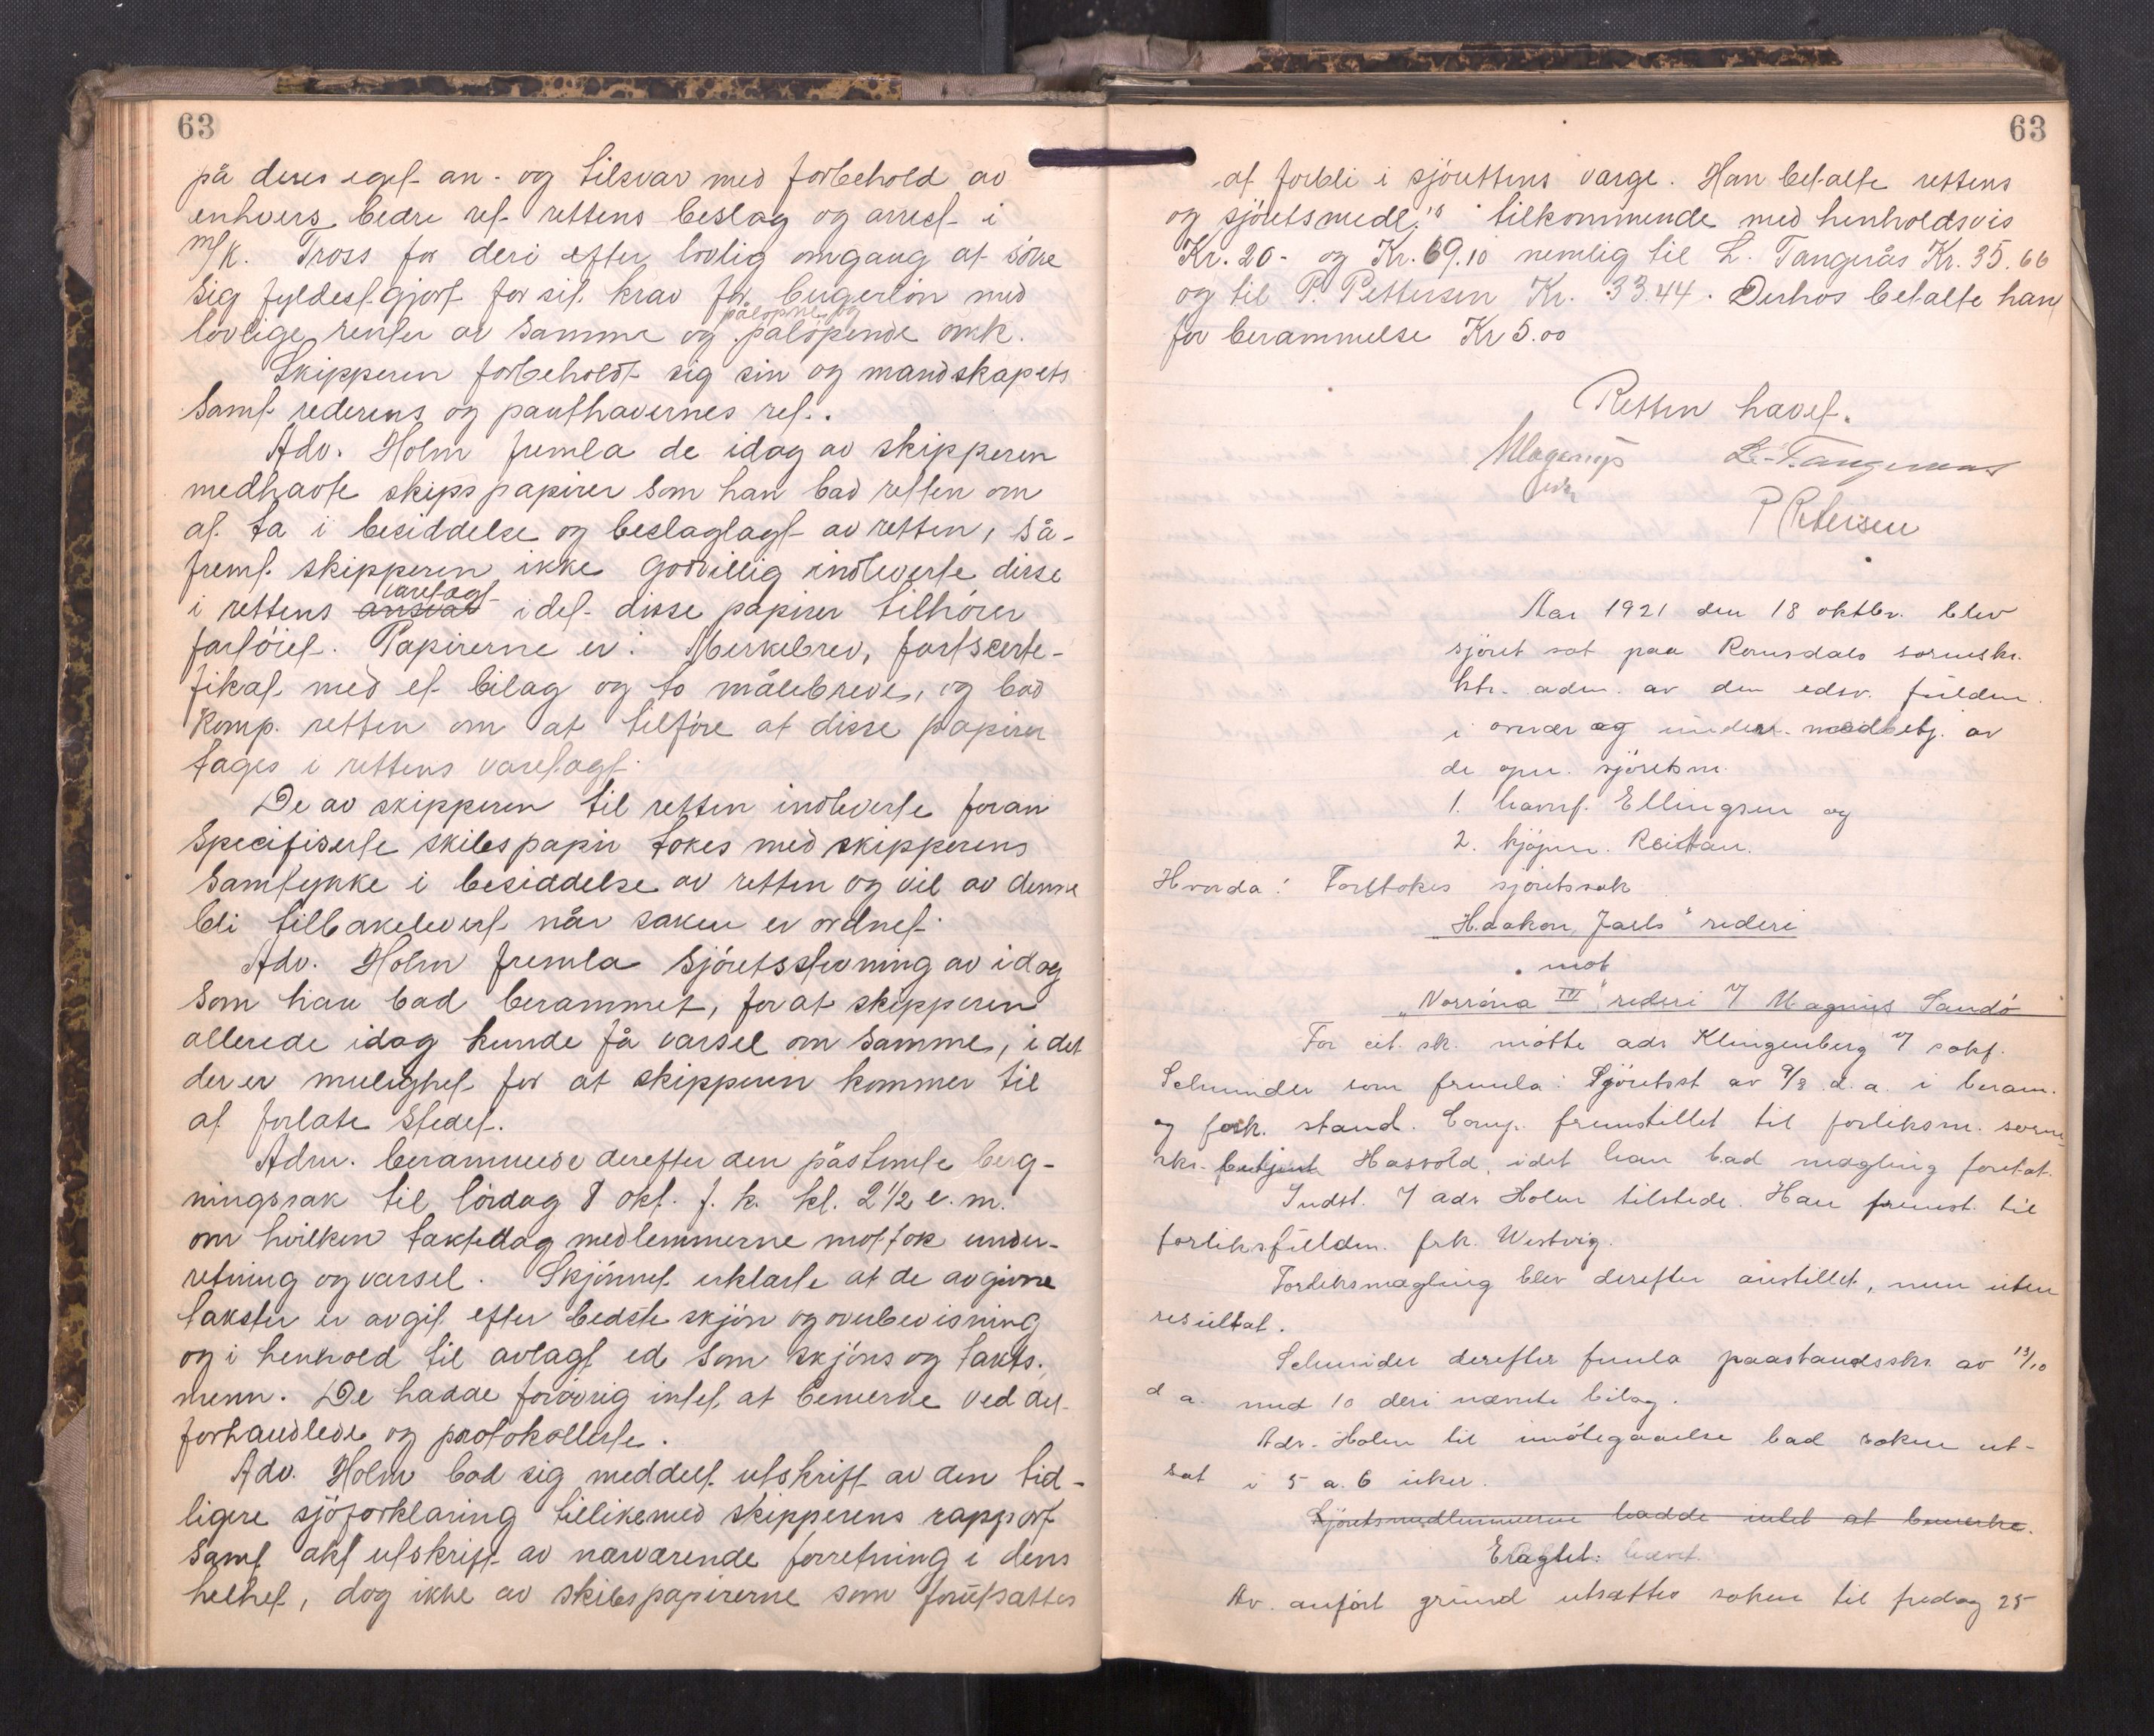 63
på deres eget an- og tilsvar med forbehold av
enhvers bedre ret rettens beslag og arrest i
m/k. Tross for deri efter lovlig omgang at söke
sig fyldestgjort for sit krav for bergerlön med
påløpne og
lovlige renter av samme og påløpende omk.
Skipperen forbeholdt sig sin og mandskapets
samt rederens og panthavernes ret.
Adv. Holm fremla de idag av skipperen
medhavte skipspapirer som han bad retten om
at ta i besiddelse og beslaglagt av retten, så-
fremt skipperen ikke godvillig indleverte disse
varetagt
i rettens ansvar idet disse papirer tilhörer
fartöiet. Papirerne er: Merkebrev, fartscerte-
fikat med et bilag og to målebreve, og bad
komp. retten om at tilföre at disse papirer
tages i rettens varetagt.
De av skipperen til retten indleverte foran
specifiserte skibspapir tokes med skipperens
samtykke i besiddelse av retten og vil av denne
bli tilbakelevert når saken er ordnet.
Adv. Holm fremla sjöretsstevning av idag
som han bad berammet, forat skipperen
allerede idag kunde få varsel om samme, idet
der er mulighet for at skipperen kommer til
at forlate stedet.
Adm. berammede derefter den påstevnte berg-
ningssak til lördag 8 okt. f. k. kl. 2 1/2 e. m.
om hvilken taktedag medlemmerne mottok under-
retning og varsel. Skjönnet erklærte at de avgivne
takster er avgit efter bedste skjön og overbevisning
og i henhold til avlagt ed som skjöns og takts-
menn. De hadde forövrig intet at bemerke ved det
forhandlede og protokollerte.
Adv. Holm bad sig meddelt utskrift av den tid-
ligere sjöforklaring tillikemed skipperens rapport
samt akt utskrift av nærværende forretning i dens
helhet, dog ikke av skibspapirerne som forutsattes
63
at forbli i sjörettens varge. Han betalte rettens
og sjöretsmedl.'s tilkommende med henholdsvis
Kr. 20- og Kr. 69.10 nemlig til L. Tangerås Kr. 35.66
og til P. Pettersen Kr. 33.44. Derhos betalte han
for berammelse Kr 5.00
Retten hævet.
L. Tangeraas
P Petersen
Aar 1921 den 18 oktbr. blev
sjöret sat paa Romsdals sorenskr.
ktr. adm. av den edsv. fuldm.
i orvær og under medbetj. av
de opn. sjöretsm.
1. havnf. Ellingsen og
2. kjöpm. Reittan.
Hvorda: Foretokes sjöretssak
"Haakon Jarls" rederi
mot
"Norröna III" rederi v/ Magnus Sandö
For cit. sk. mötte adv Klingenberg v/ sakf.
Schmider som fremla: Sjöretsst av 9/8 d. a. i beram.
og fork. stand. Comp. fremstillet til forliksm. soren-
skr. Hasvold, idet han bad mægling foretat.
Indst. v/ adv Holm tilstede. Han fremst. til
forliksfuldm. frk. Westvig.
Forliksmægling blev derefter anstillet, men uten
resultat.
Schmider derefter fremla paastandsskr. av 13/10
d a. med 10 deri nævnte bilag.
Adv. Holm til imötegaaelse bad saken ut-
sat i 5 a. 6 uker.
Sjöretsmedlemmerne hadde intet at bemerke.
Eragtet: hævet.
Av anfört grund utsættes saken til fredag 25